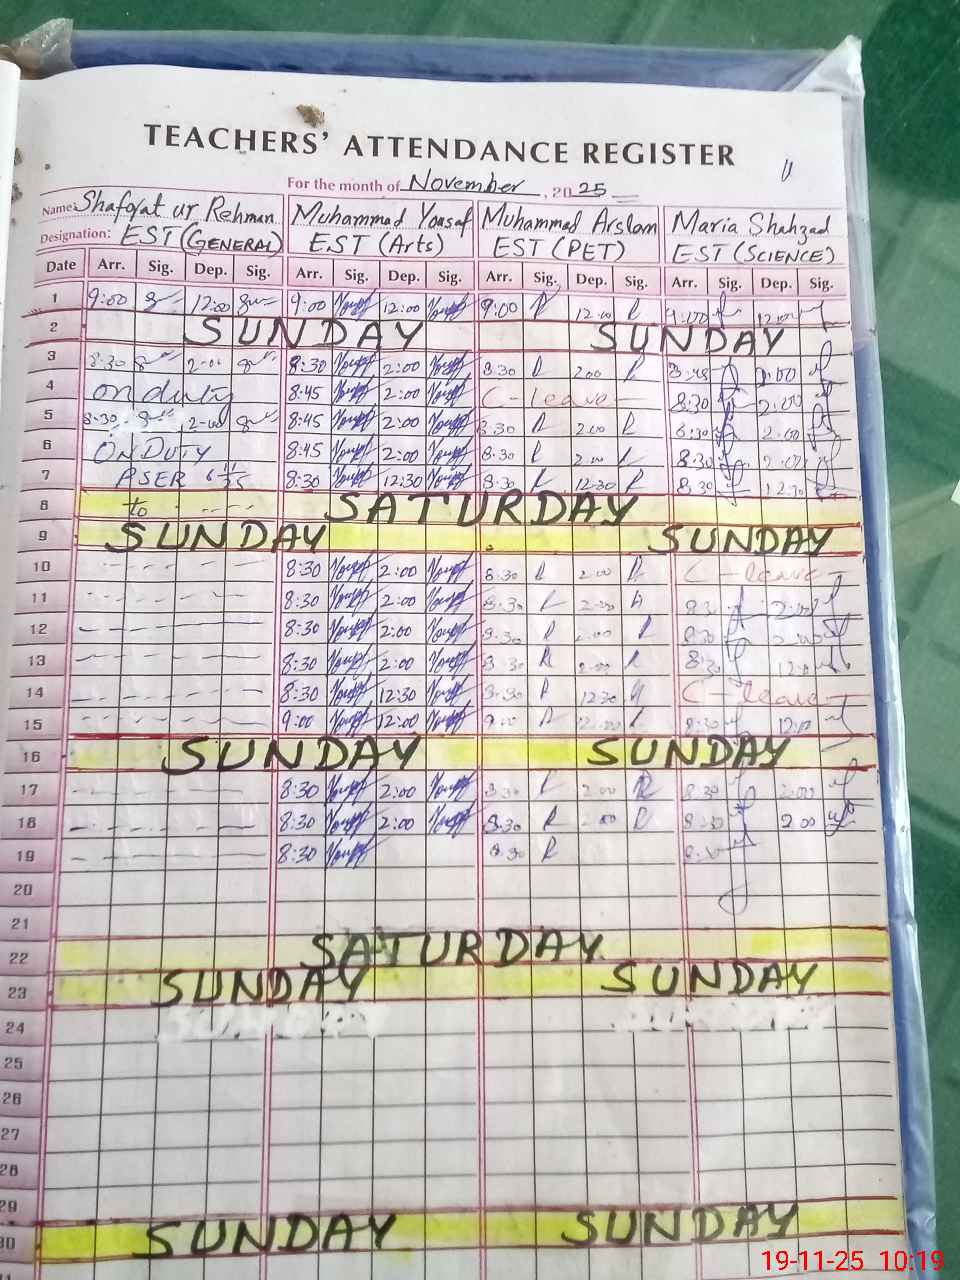 TEACHERS' ATTENDANCE REGISTER
For the month of November, 2025
Name: Shafqat ur Rehman Muhammad Yousaf Muhammad Arslam Maria Shahzad
Designation: EST (GENERAL) EST (Arts) EST (PET) EST (SCIENCE)
Date Arr. Sig. Dep. Sig. Arr. Sig. Dep. Sig. Arr. Sig. Dep. Sig. Arr. Sig. Dep. Sig.
1 9:00 12:00 9:00 12:00 9:00 R 12.00 R 9:00 12:00
2 SUNDAY SUNDAY
3 8:30 2:00 8:30 2:00 8.30 R 2.00 R 2:00
4 on duty 8:45 2:00 C-leave 8:30 2:00
5 8:30 2:00 8:45 2:00 8.30 R 2.00 R 8:30 2:00
6 ON DUTY 8:45 2:00 8.30 R 2.00 R 8:30 2:00
7 PSER 8:30 12:30 8.30 R 12.30 R 8:30 12:30
8 to SATURDAY
9 SUNDAY SUNDAY
10 8:30 2:00 8.30 R 2.00 R C-leave
11 8:30 2:00 8.30 R 2.00 8:30 2:00
12 8:30 2:00 8.30 R 2.00 R 8:30 2:00
13 8:30 2:00 8.30 R 2.00 R 8:30 12:00
14 8:30 12:30 8.30 R 12.30 C-leave
15 9:00 12:00 9.00 R 12.00 R 8:30 12:00
16 SUNDAY SUNDAY
17 8:30 2:00 8.30 R 2.00 R 8:30 2:00
18 8:30 2:00 8.30 R 2.00 R 8:30 2:00
19 8:30 8.30 R
20
21
22 SATURDAY
23 SUNDAY SUNDAY
24
25
26
27
28
29
30 SUNDAY SUNDAY
19-11-25 10:19